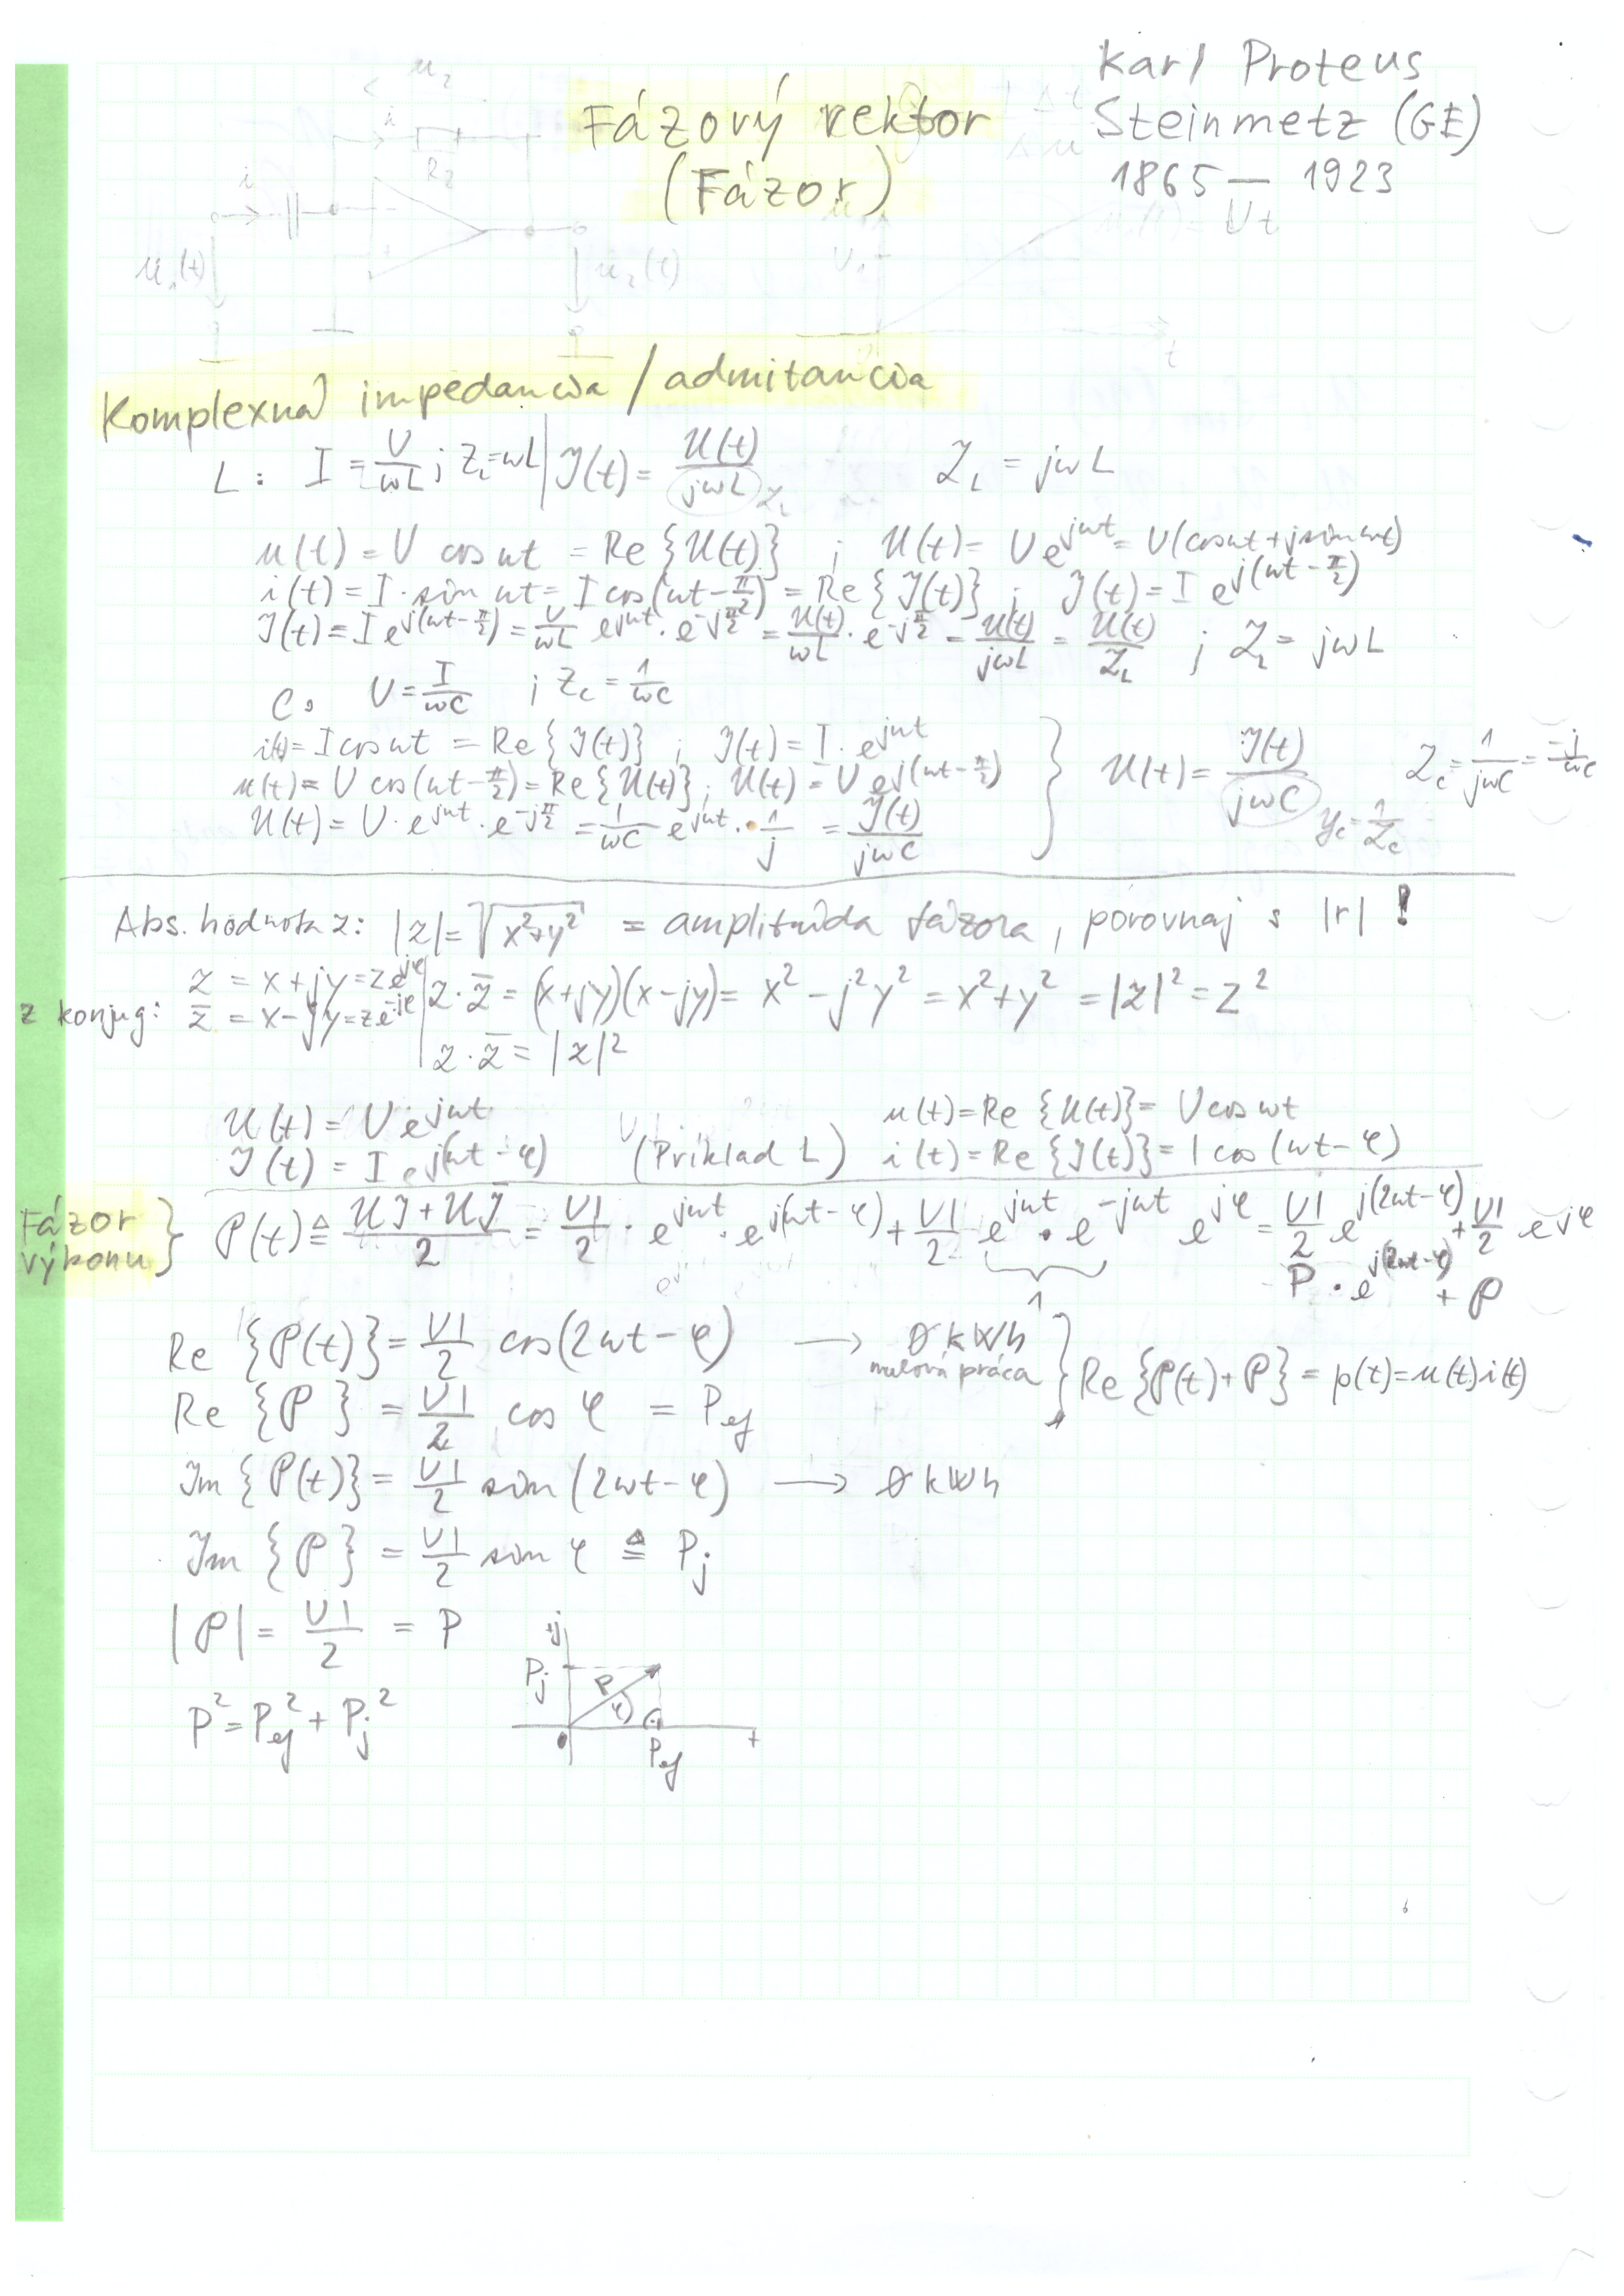 Fázový vektor
(Fázor)
Karl Proteus
Steinmetz (GE)
1865 — 1923
Komplexná impedancia / admitancia
L: I = U/ωL ; Z_L = ωL | 𝓘(t) = 𝓤(t)/jωL 𝒵_L 𝒵_L = jωL
u(t) = U cos ωt = Re {𝓤(t)} ; 𝓤(t) = U e^{jωt} = U(cos ωt + j sin ωt)
i(t) = I · sin ωt = I cos(ωt - π/2) = Re {𝓘(t)} ; 𝓘(t) = I e^{j(ωt - π/2)}
𝓘(t) = I e^{j(ωt - π/2)} = U/ωL e^{jωt} · e^{-jπ/2} = 𝓤(t)/ωL · e^{-jπ/2} = 𝓤(t)/jωL = 𝓤(t)/𝒵_L ; 𝒵_L = jωL
C: U = I/ωC ; Z_C = 1/ωC
i(t) = I cos ωt = Re {𝓘(t)} ; 𝓘(t) = I · e^{jωt}
u(t) = U cos(ωt - π/2) = Re {𝓤(t)} ; 𝓤(t) = U e^{j(ωt - π/2)}
𝓤(t) = U · e^{jωt} · e^{-jπ/2} = 1/ωC e^{jωt} · 1/j = 𝓘(t)/jωC
} 𝓤(t) = 𝓘(t)/jωC 𝒵_C = 1/jωC = -j/ωC
𝒴_C = 1/𝒵_C
Abs. hodnota z: |z| = √(x²+y²) = amplitúda fázora, porovnaj s |r| !
z = x + jy = z e^{jφ}
z konjug: z̄ = x - jy = z e^{-jφ}
z · z̄ = (x+jy)(x-jy) = x² - j²y² = x² + y² = |z|² = z²
z · z̄ = |z|²
𝓤(t) = U e^{jωt} u(t) = Re {𝓤(t)} = U cos ωt
𝓘(t) = I e^{j(ωt - φ)} (Príklad L) i(t) = Re {𝓘(t)} = I cos (ωt - φ)
Fázor
výkonu
} 𝒫(t) ≙ (𝓤𝓘 + 𝓤𝓘̄)/2 = UI/2 · e^{jωt} · e^{j(ωt-φ)} + UI/2 e^{jωt} · e^{-jωt} e^{jφ} = UI/2 e^{j(2ωt-φ)} + UI/2 e^{jφ}
1
P · e^{j(2ωt-φ)} + 𝒫
Re {𝒫(t)} = UI/2 cos(2ωt - φ) → 0 kWh
nulová práca
Re {𝒫} = UI/2 cos φ = P_ef
} Re {𝒫(t) + 𝒫} = p(t) = u(t)i(t)
Im {𝒫(t)} = UI/2 sin (2ωt - φ) → 0 kWh
Im {𝒫} = UI/2 sin φ ≙ P_j
|𝒫| = UI/2 = P
P² = P_ef² + P_j²
+j
P_j
P
φ
0
+
P_ef